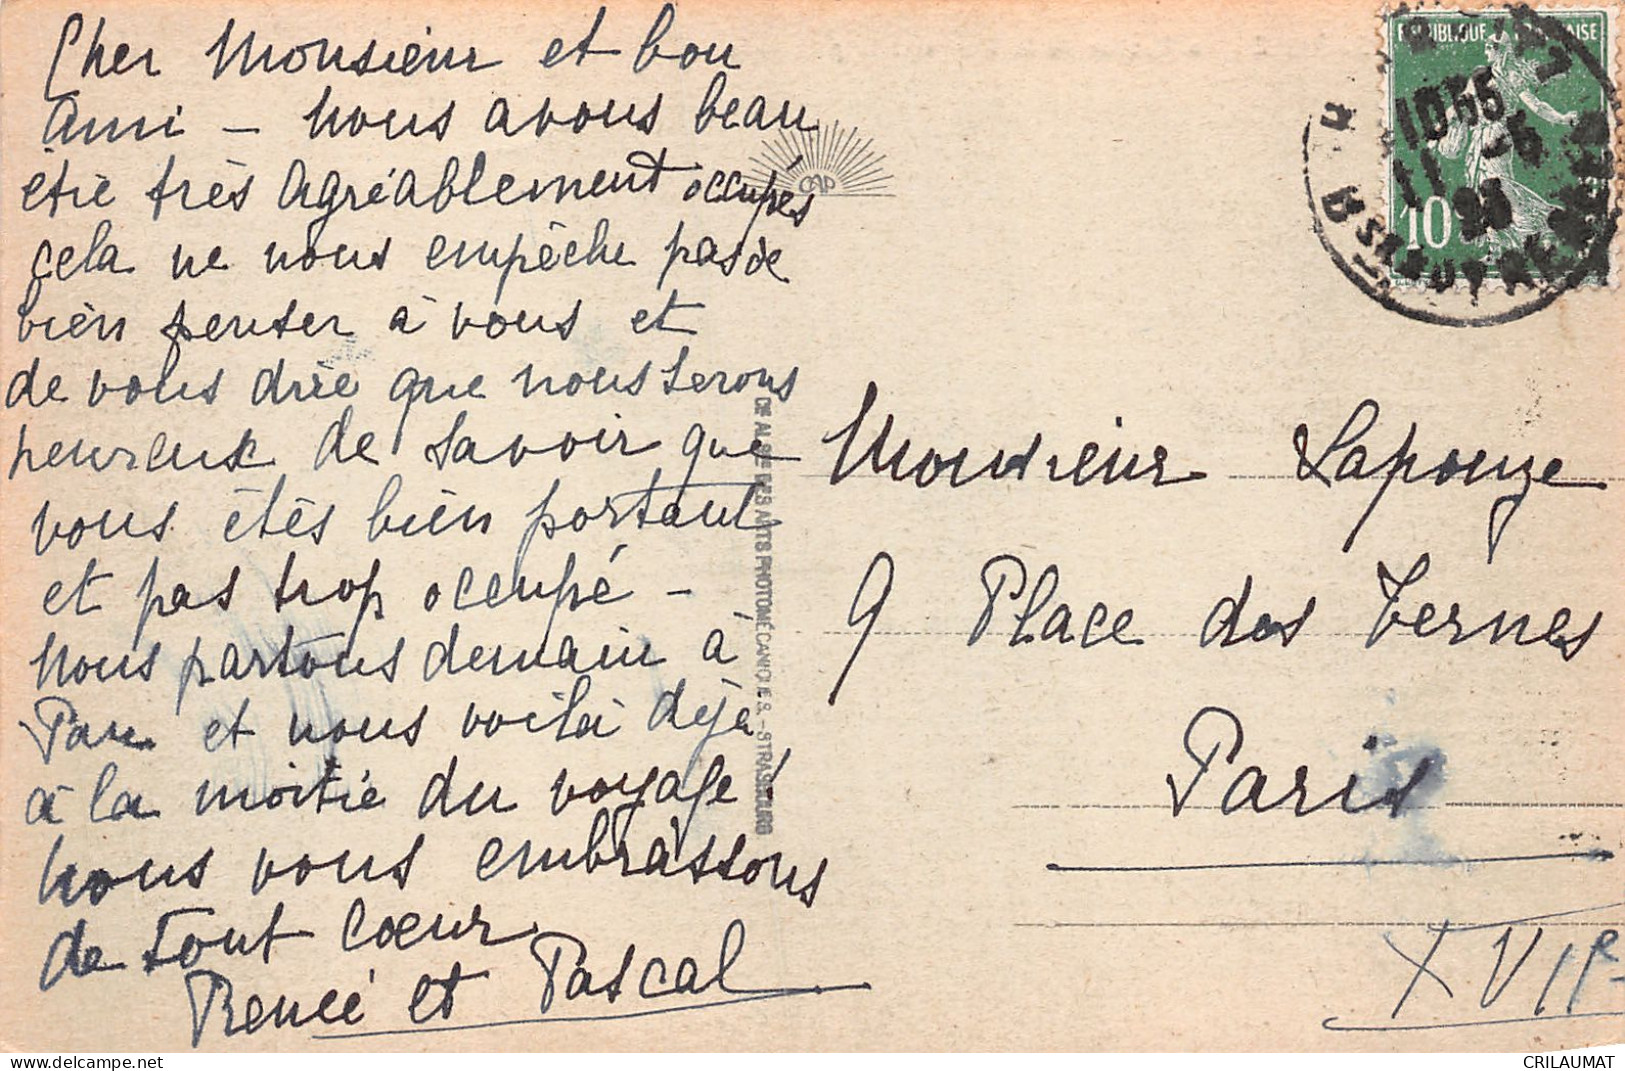 Cher Monsieur et bon
Ami - nous avons beau
étre très agréablement occupés
cela ne nous empèche pas de
bien penser à vous et
de vous dire que nous serons
heureux de savoir que
vous étés bien portant
et pas trop occupé -
Nous partons demain à
Pau et nous voilà déjà
à la moitié du voyage!
Nous vous embrassons
de tout cœur
Renée et Pascal
CAP
DE ALSACE DES ARTS PHOTOMÉCANIQUES. - STRASBOURG
10
Monsieur Lapouze
9 Place des Ternes
Paris
XVIIe
CRILAUMAT